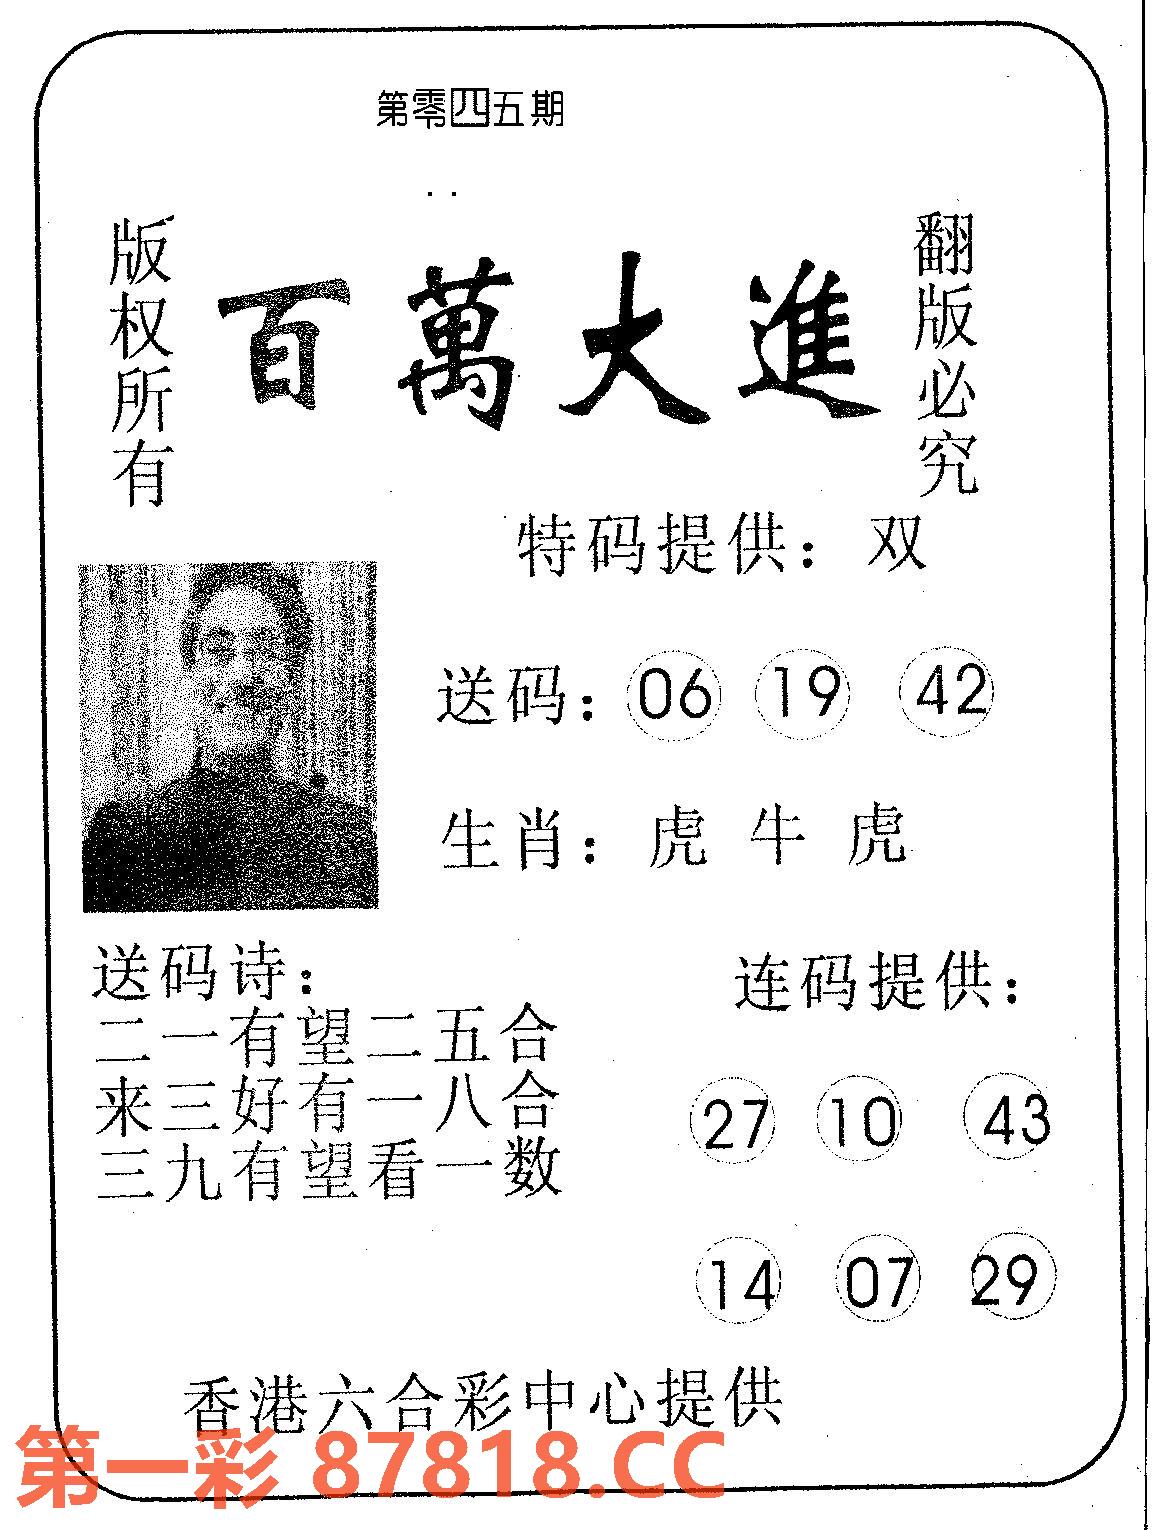 第零四五期
版权所有
百萬大進
翻版必究
特码提供：双
送码：06 19 42
生肖：虎 牛 虎
送码诗：
二一有望二五合
来三好有一八合
三九有望看一数
连码提供：
27 10 43
14 07 29
香港六合彩中心提供
第一彩 87818.CC